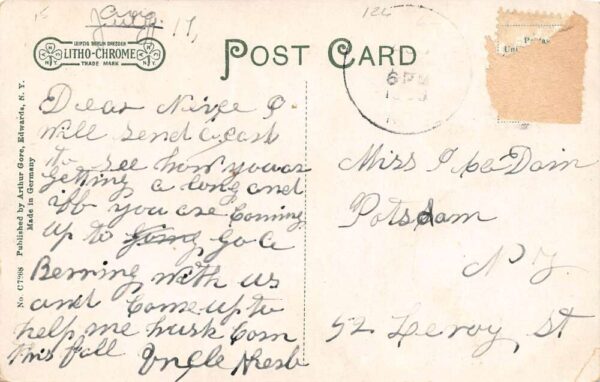 Aug 11,
LEIPZIG BERLIN DRESDEN
LITHO-CHROME
TRADE MARK
POST CARD
6 PM
No. C7298 Published by Arthur Gore, Edwards, N. Y.
Made in Germany
Dear I
will send a card
to see how you as
getting a long and
if you are Coming
up to go a
Berring with us
and Come up to
help me husk Corn
this fall Uncle
Miss Dain
Potsdam
N y.
52 Leroy, St